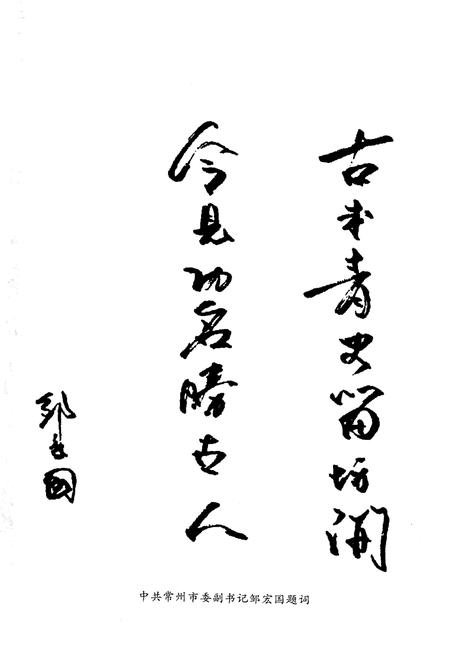 古来青史留坊
今見功名勝古人
邹宏國
中共常州市委副书记邹宏国题词